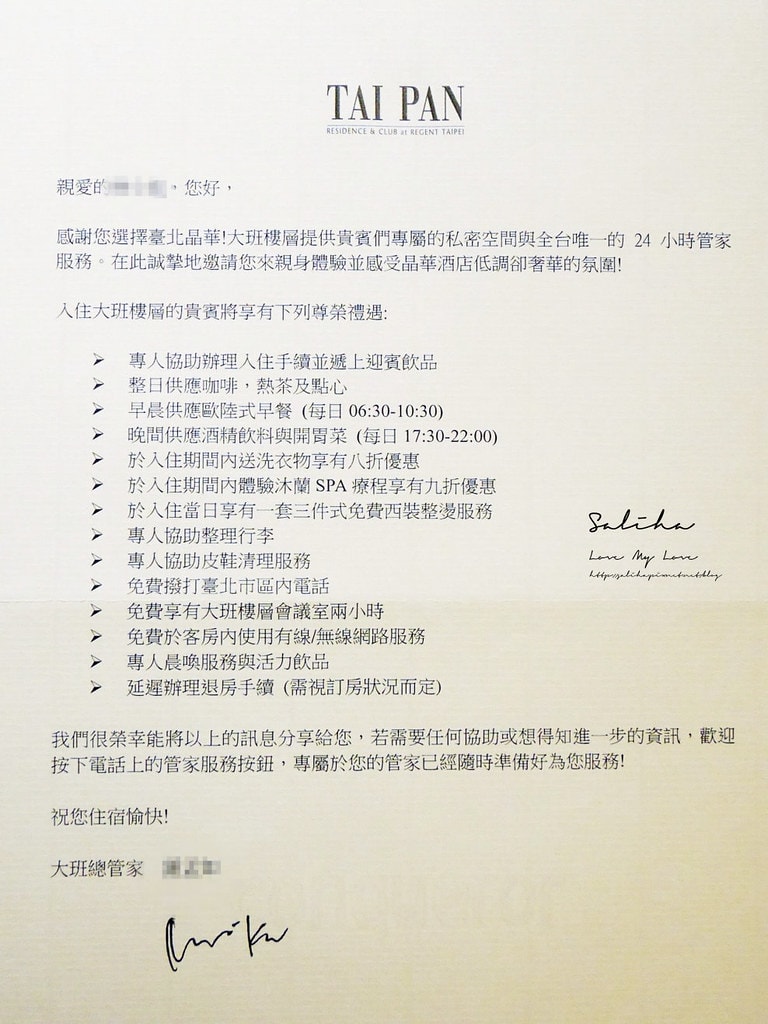 TAI PAN
RESIDENCE & CLUB at REGENT TAIPEI
親愛的 。您好，
感謝您選擇臺北晶華!大班樓層提供貴賓們專屬的私密空間與全台唯一的 24 小時管家
服務。在此誠摯地邀請您來親身體驗並感受晶華酒店低調卻奢華的氛圍!
入住大班樓層的貴賓將享有下列尊榮禮遇:
➢ 專人協助辦理入住手續並遞上迎賓飲品
➢ 整日供應咖啡，熱茶及點心
➢ 早晨供應歐陸式早餐 (每日 06:30-10:30)
➢ 晚間供應酒精飲料與開胃菜 (每日 17:30-22:00)
➢ 於入住期間內送洗衣物享有八折優惠
➢ 於入住期間內體驗沐蘭 SPA 療程享有九折優惠
➢ 於入住當日享有一套三件式免費西裝整燙服務
➢ 專人協助整理行李
➢ 專人協助皮鞋清理服務
➢ 免費撥打臺北市區內電話
➢ 免費享有大班樓層會議室兩小時
➢ 免費於客房內使用有線/無線網路服務
➢ 專人晨喚服務與活力飲品
➢ 延遲辦理退房手續 (需視訂房狀況而定)
Saliha
Love My Love
我們很榮幸能將以上的訊息分享給您，若需要任何協助或想得知進一步的資訊，歡迎
按下電話上的管家服務按鈕，專屬於您的管家已經隨時準備好為您服務!
祝您住宿愉快!
大班總管家